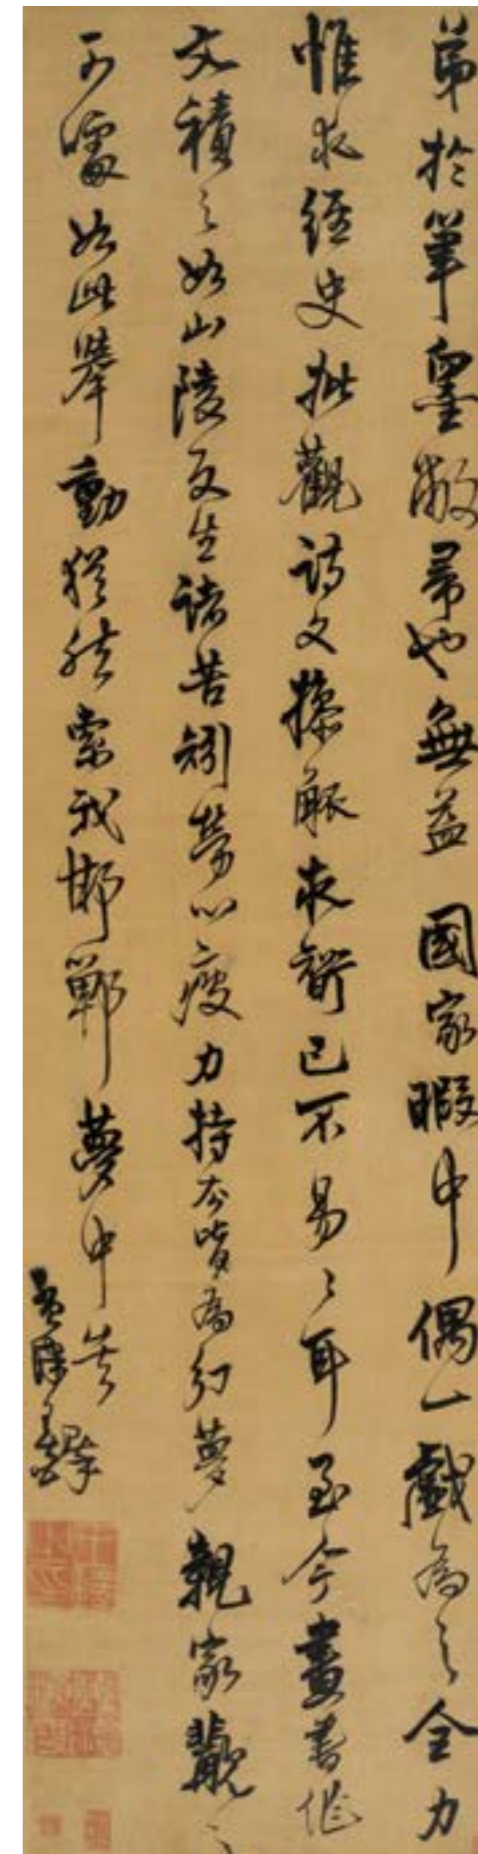 弟於筆墨敝帚也無益國家暇中偶一戲為之全力
惟求經史批觀詩文操觚求解已不易々耳至今畫書作
文積之如山陵及生諸苦劬勞心瘦力持本皆為幻夢親家觀之
不嚅如此舉動猶然索我邯鄲夢中
王鐸